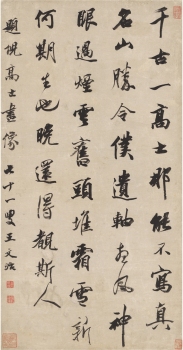 千古一高士那能不寫真
名山勝令僕遺軸風神
眼過煙雲舊頭堆霜雪新
何期生也晚還得覿斯人
題倪高士畫像 七十一叟王文治